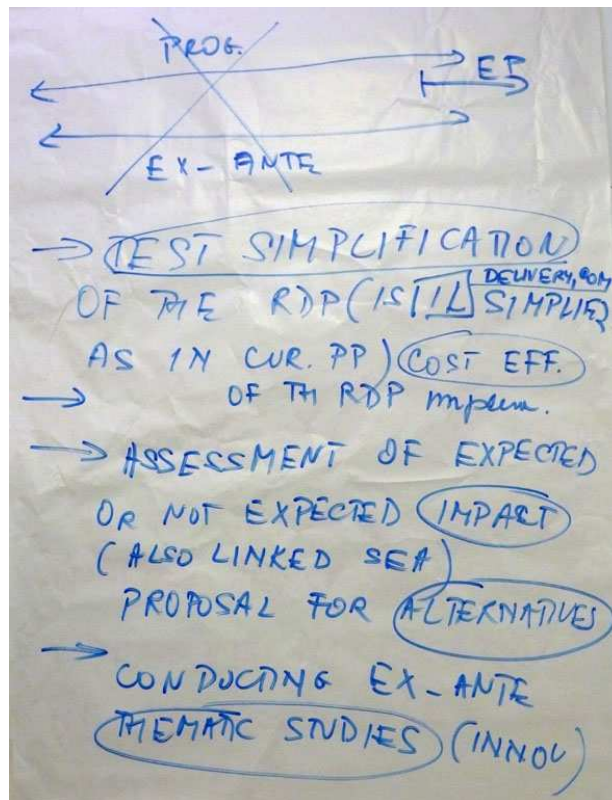 PROG.
EP
EX-ANTE
→ TEST SIMPLIFICATION
DELIVERY, COM
OF THE RDP (IS IL SIMPLIE)
AS IN CUR. PP) COST EFF.
→ OF TH RDP implem.
→ ASSESSMENT OF EXPECTED
OR NOT EXPECTED IMPACT
(ALSO LINKED SEA)
PROPOSAL FOR ALTERNATIVES
→
CONDUCTING EX-ANTE
THEMATIC STUDIES (INNOV)